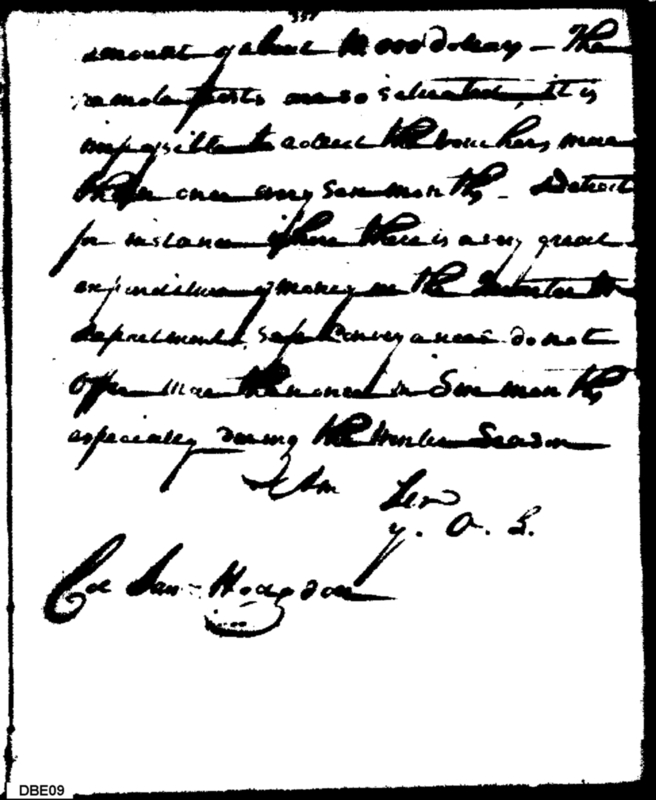 337
amount of about 14000 dollars – The
remote posts are so situated, it is
impossible to collect the vouchers more
than once every six months – Detroit
for instance where there is a very great
expenditure of money in the Quarter Mr
department, safe conveyances do not
offer more than once in six months
especially during the Winter Season
I Am Sir
y. O. S.
Col Sam Hodgdon
DBE09